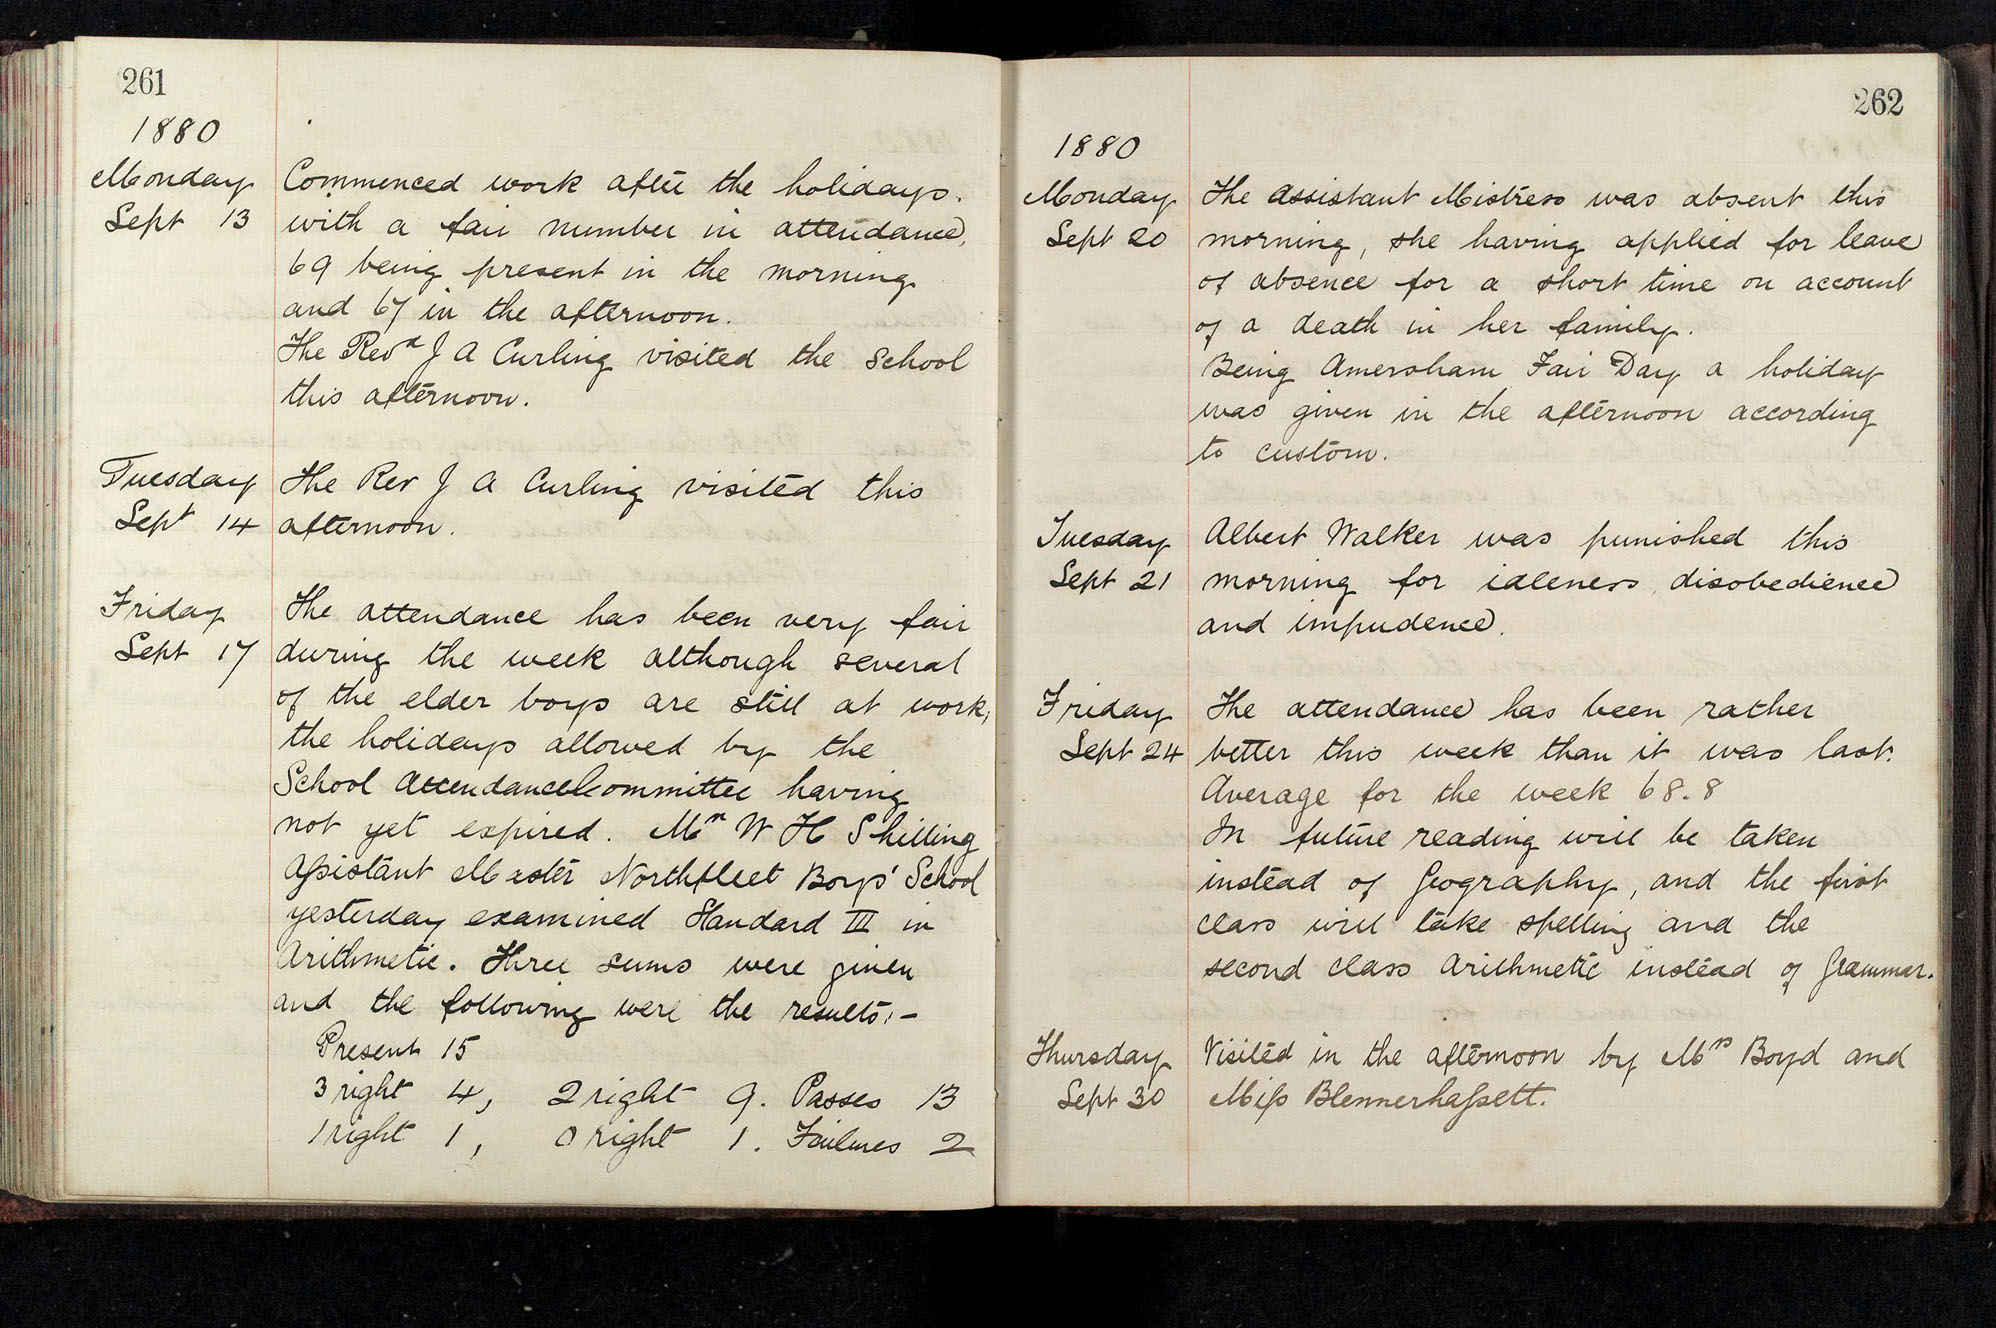 261
1880
Monday Commenced work after the holidays.
Sept 13 with a fair number in attendance,
69 being present in the morning
and 67 in the afternoon.
The Revd J A Curling visited the School
this afternoon.
Tuesday The Rev J A Curling visited this
Sept 14 afternoon.
Friday The attendance has been very fair
Sept 17 during the week although several
of the elder boys are still at work;
the holidays allowed by the
School Attendance Committee having
not yet expired. Mr W H Shilling
Assistant Master Northfleet Boys' School
yesterday examined Standard III in
Arithmetic. Three sums were given
and the following were the results:-
Present 15
3 right 4, 2 right 9. Passes 13
1 right 1, 0 right 1. Failures 2
262
1880
Monday The Assistant Mistress was absent this
Sept 20 morning, she having applied for leave
of absence for a short time on account
of a death in her family.
Being Amersham Fair Day a holiday
was given in the afternoon according
to custom.
Tuesday Albert Walker was punished this
Sept 21 morning for idleness, disobedience
and impudence.
Friday The attendance has been rather
Sept 24 better this week than it was last.
Average for the week 68.8
In future reading will be taken
instead of Geography, and the first
class will take spelling and the
second class Arithmetic instead of Grammar.
Thursday Visited in the afternoon by Mrs Boyd and
Sept 30 Miss Blennerhassett.